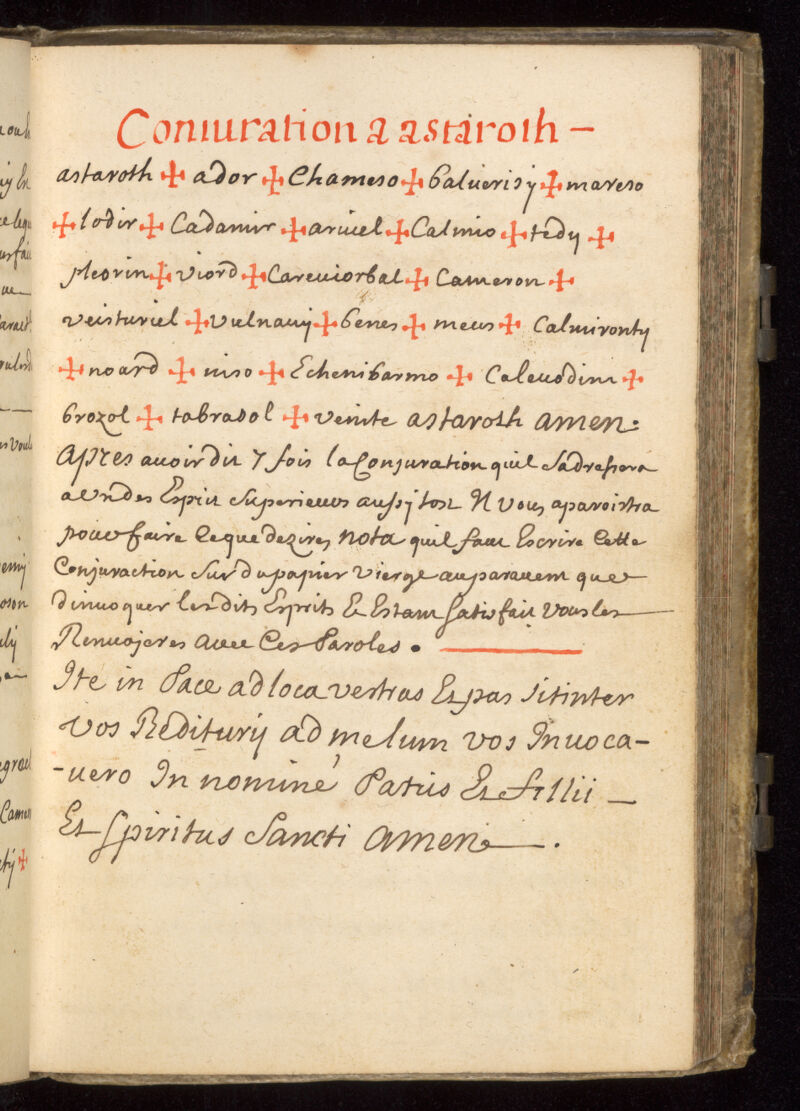 Coniuration a astaroth –
astaroth ✠ ador ✠ Chameso ✠ baluerisy ✠ mareso
✠ lodir ✠ Cadamir ✠ aruiel ✠ Calmio ✠ tedy ✠
pleorin ✠ viord ✠ Careuiorbal ✠ Cameron ✠
veisturiel ✠ vulnauij ✠ benes ✠ meus ✠ Calmironty
✠ noard ✠ niso ✠ Echenibarmo ✠ Caleuodim ✠
brozol ✠ tabrasol ✠ venite astaroth amen:
apres auoir dit 7 fois la Conjuration quil Sadressera
a Un des Esprit Superieurs aussy tost Il vous aparoistra
pour faire Ceque dezires nota quil faut Escrire Cette
Conjuraction Sur du papier vierge auparauent que
dinuoquer lesdits Esprits Et Estant Satisfait vous les
Renuojeres auec Ces Paroles .
Ite in Pace ad loca vestras Et pax Sit inter
vos Rediturij ad melum vos Inuoca-
-uero In nomine Patris Et fillii –
Et Spiritus Sancti amen .